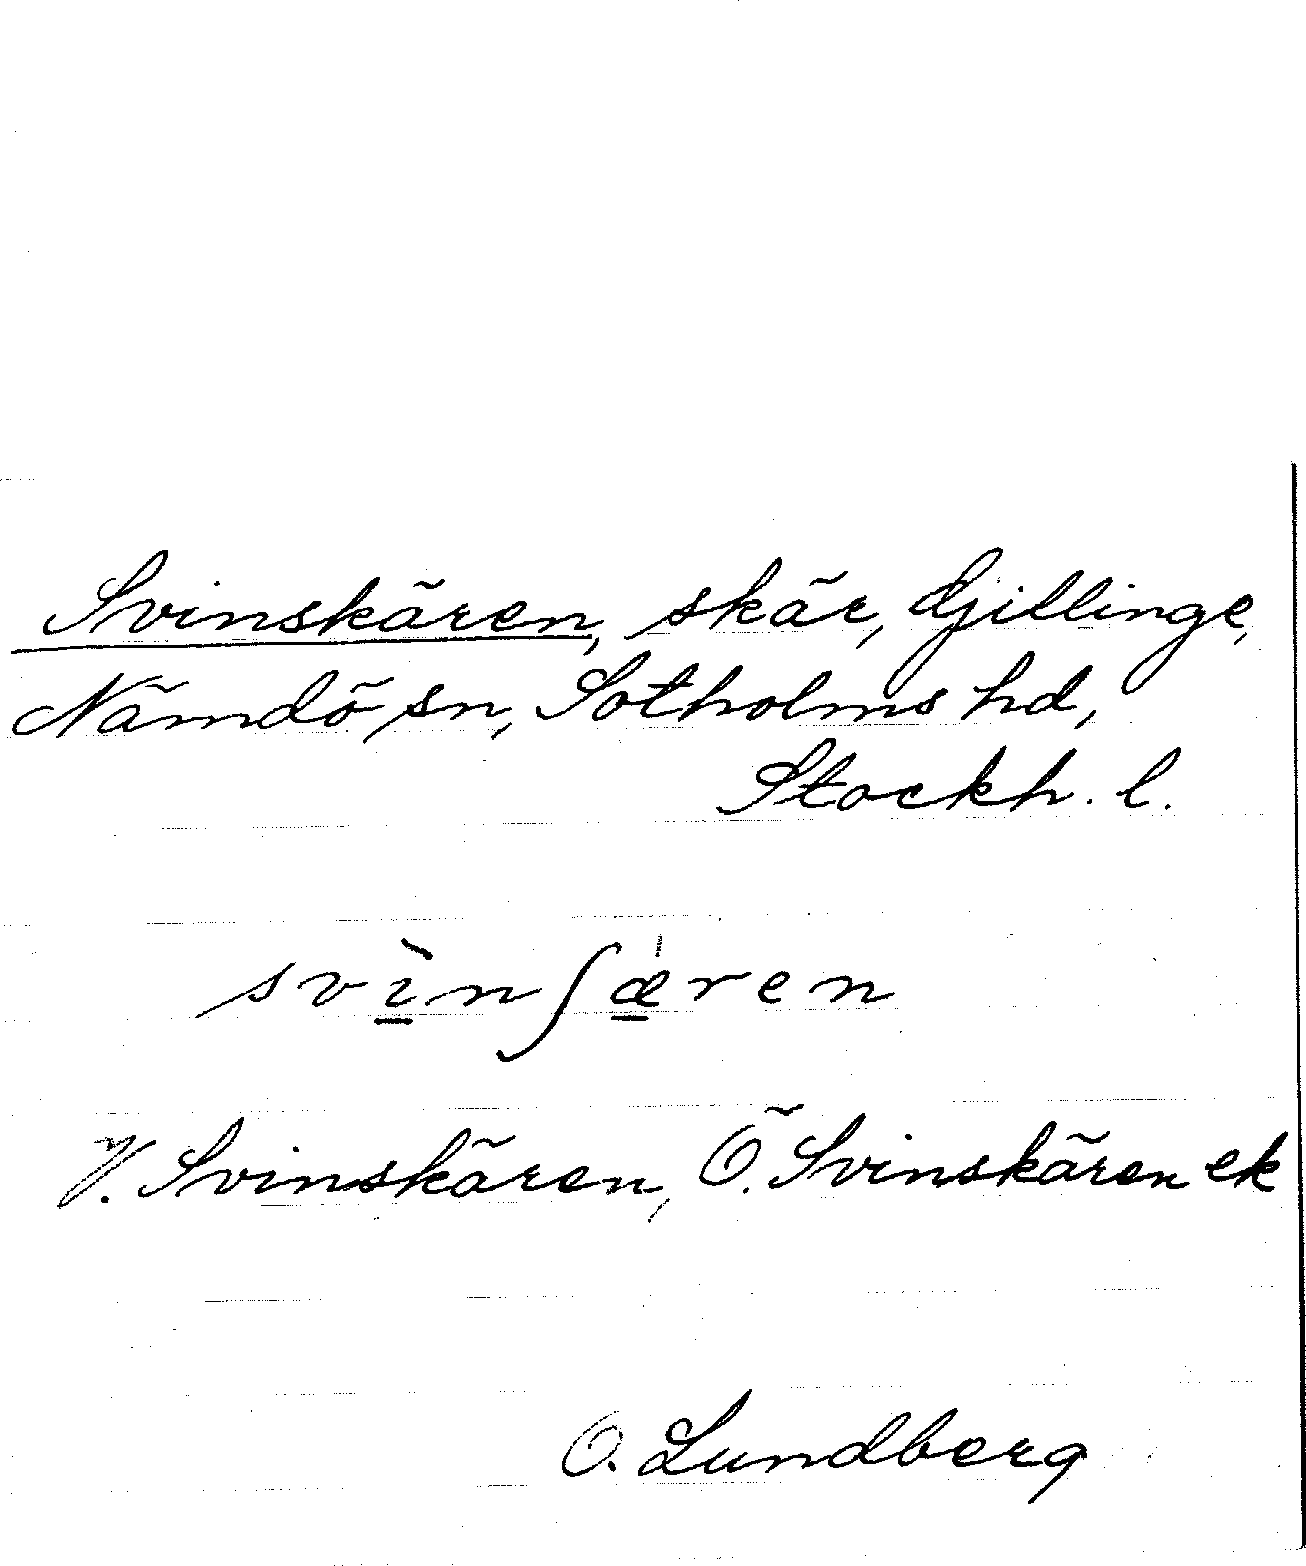 Svinskären, skär, Gjillinge,
Nämdö sn, Sotholms hd,
Stockh. l.
svì̱nʃæ̱̍ren
V. Svinskären, Ö. Svinskären ek
O. Lundberg